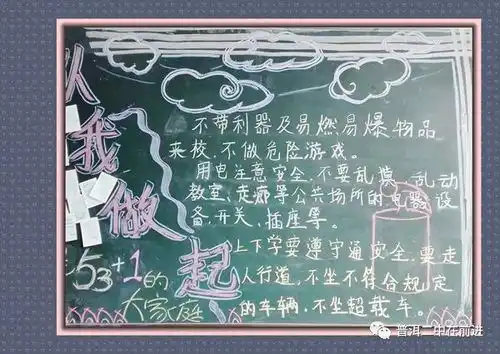 从我做起
不带利器及易燃易爆物品
来校,不做危险游戏。
用电注意安全,不要乱摸、乱动
教室、走廊等公共场所的电器设
备、开关、插座等。
上下学要遵守通安全,要走
人行道,不坐不符合规定
的车辆,不坐超载车。
53+1的
大家庭
普洱二中在前进